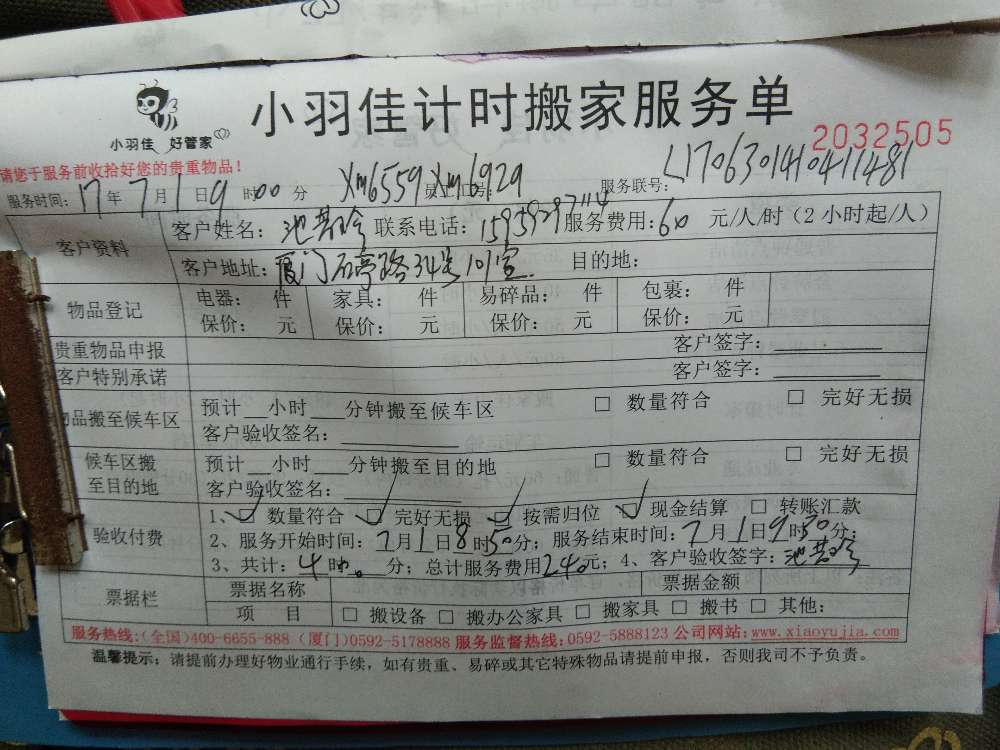 小羽佳计时搬家服务单
小羽佳 好管家
2032505
请您于服务前收拾好您的贵重物品！
服务时间：17年7月1日9时00分 Xm6559 员工工号：Xm6929 服务联号：L1706301410411481
客户资料 客户姓名： 联系电话：15959297114 服务费用：60 元/人/时（2小时起/人）
客户地址：厦门石亭路34号101室 目的地：
物品登记 电器： 件 家具： 件 易碎品： 件 包裹： 件
保价： 元 保价： 元 保价： 元 保价： 元
贵重物品申报 客户签字：
客户特别承诺 客户签字：
物品搬至候车区 预计__小时___分钟搬至候车区 □ 数量符合 □ 完好无损
客户验收签名：
候车区搬至目的地 预计__小时___分钟搬至目的地 □ 数量符合 □ 完好无损
客户验收签名：
验收付费 1、☑ 数量符合 ☑ 完好无损 ☑ 按需归位 ☑ 现金结算 □ 转账汇款
2、服务开始时间：7月1日8时50分；服务结束时间：7月1日9时30分；
3、共计：4时 分；总计服务费用240元；4、客户验收签字：
票据栏 票据名称 票据金额
项 目 □ 搬设备 □ 搬办公家具 □ 搬家具 □ 搬书 □ 其他：
服务热线：(全国)400-6655-888 (厦门)0592-5178888 服务监督热线：0592-5888123 公司网站：www.xiaoyujia.com
温馨提示：请提前办理好物业通行手续，如有贵重、易碎或其它特殊物品请提前申报，否则我司不予负责。